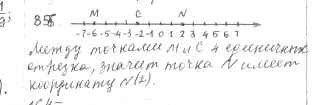 855
M C N
-7-6-5-4-3-2-1 0 1 2 3 4 5 6 7
Между точками M и C 4 единичных
отрезка, значит точка N имеет
координату N(2).